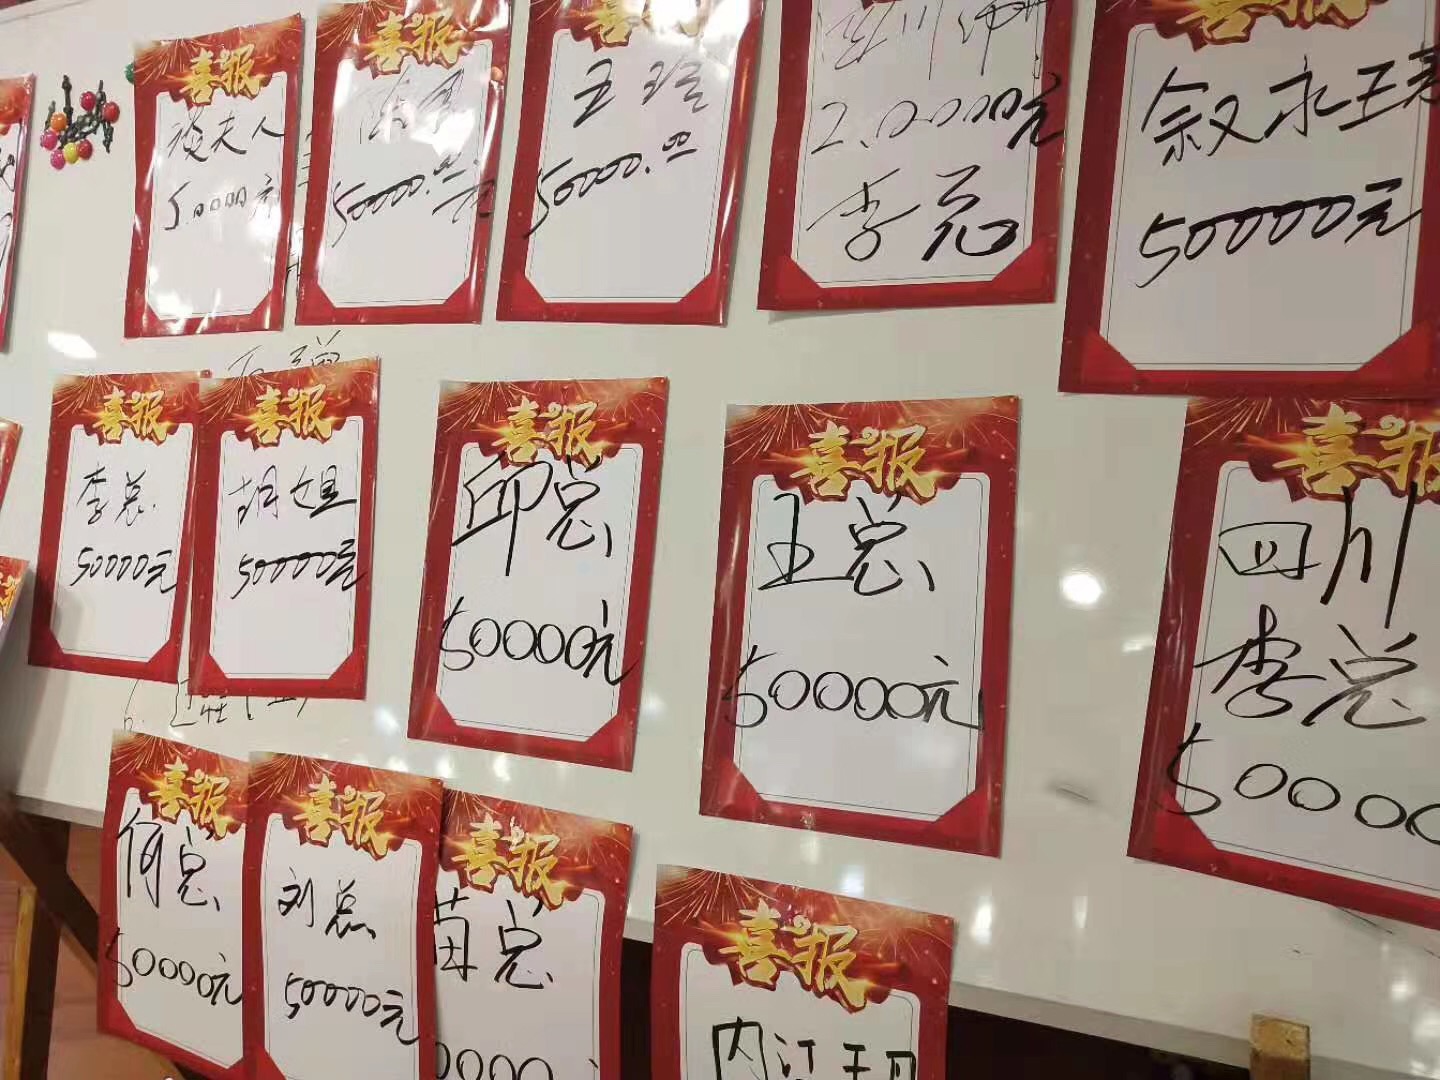 喜报
夫人
50000元
喜报
50000.00元
喜报
王瑶
50000.00
2.0000元
李总
喜报
叙永王
50000元
喜报
李总
50000元
喜报
胡姐
50000元
喜报
邱总
50000元
喜报
王总
50000元
喜报
四川
李总
50000
喜报
何总
50000元
喜报
刘总
50000元
喜报
苗总
0000元
喜报
内江王